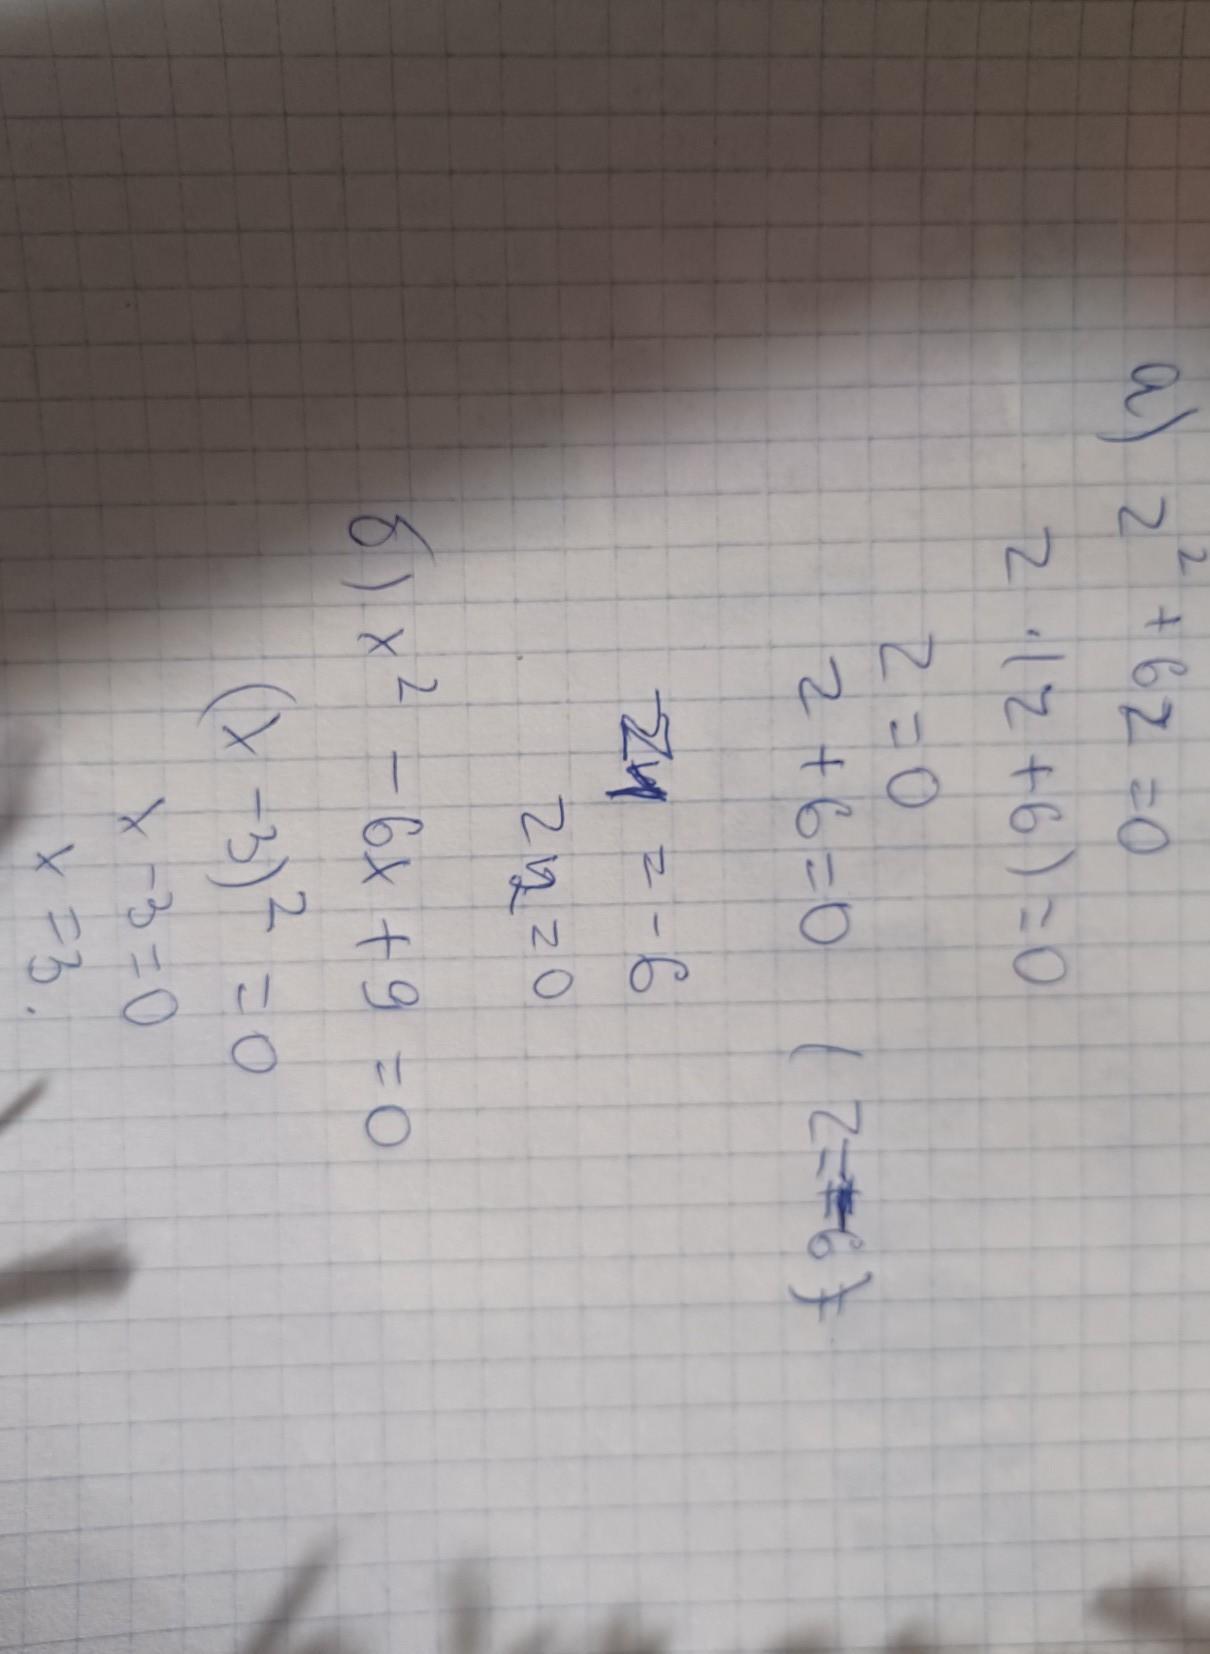 а) z² + 6z = 0
z · (z + 6) = 0
z = 0
z + 6 = 0 ( z = 6)
z₁ = - 6
z₂ = 0
б) x² - 6x + 9 = 0
(x - 3)² = 0
x - 3 = 0
x = 3.